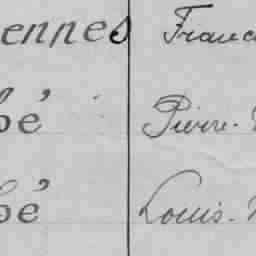 ennes Franc
bé Pierre.
bé Louis.